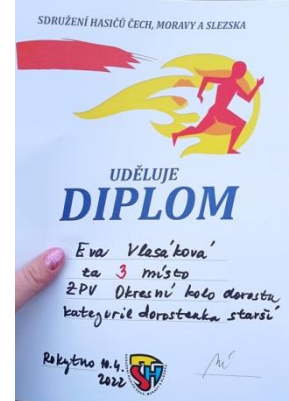 SDRUŽENÍ HASIČŮ ČECH, MORAVY A SLEZSKA
UDĚLUJE
DIPLOM
Eva Vlasáková
za 3 místo
ZPV Okresní kolo dorostu
kategorie dorostenka starší
Rokytno 10.4.
2022